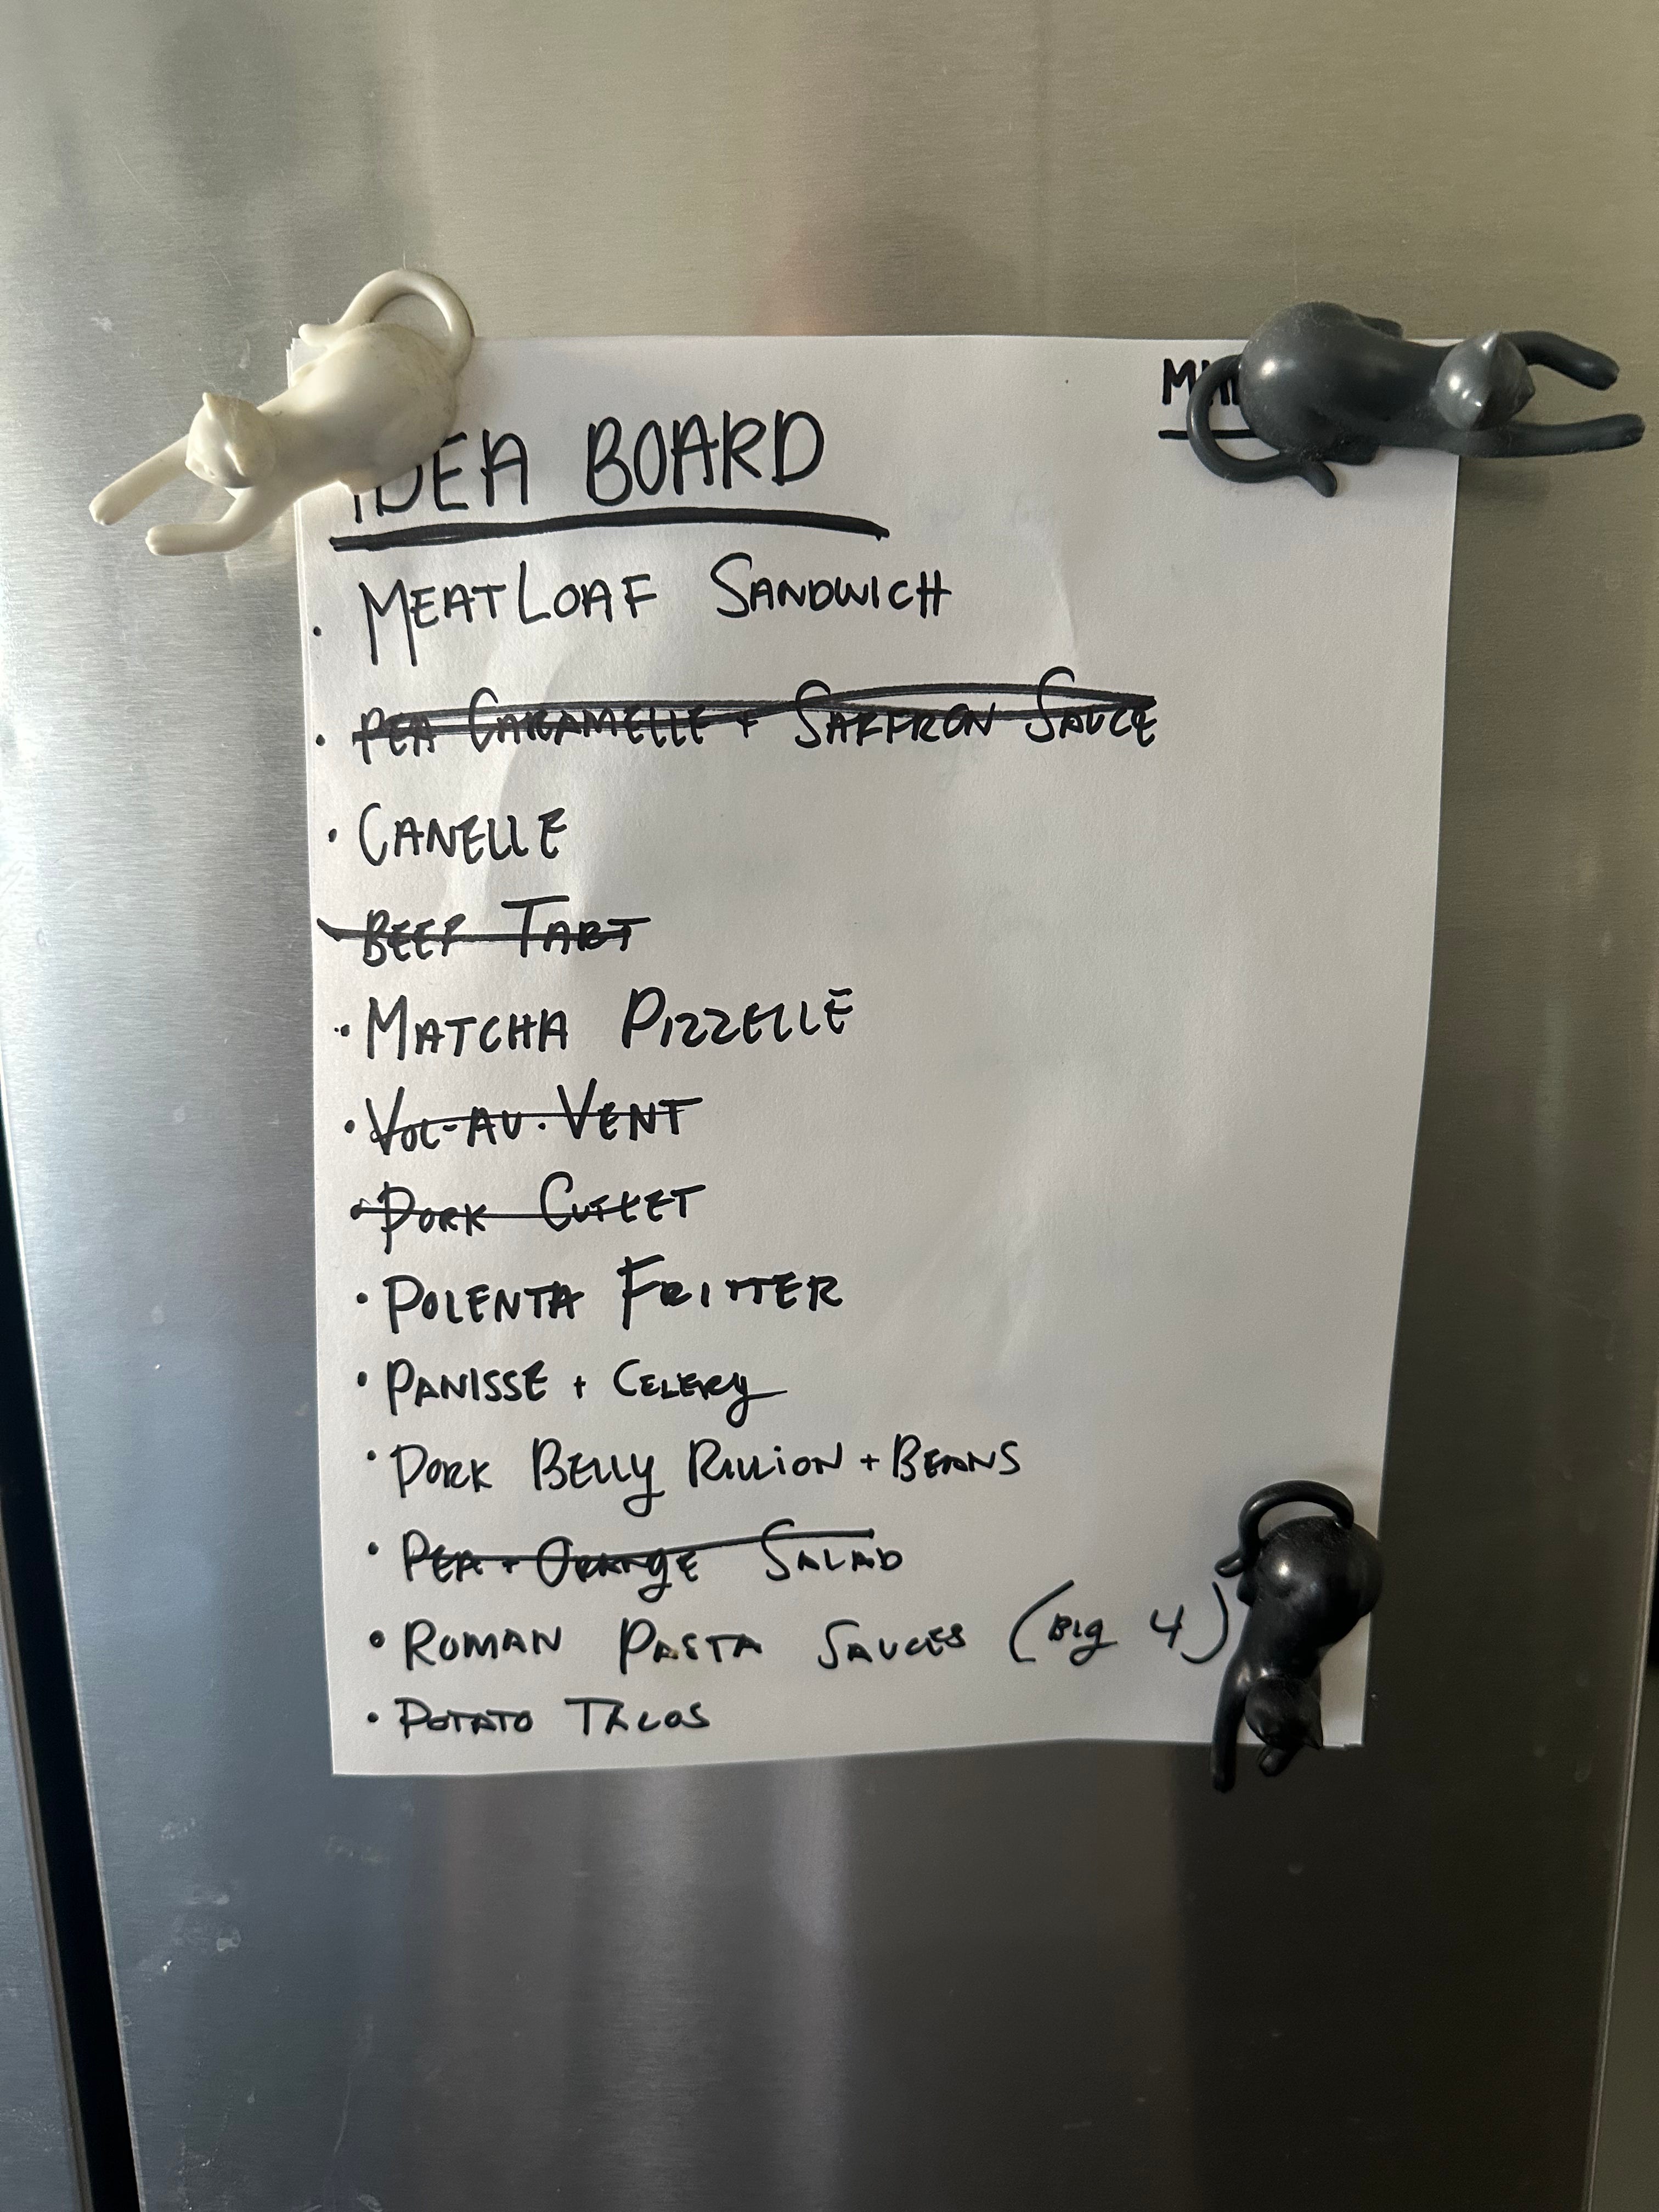 IDEA BOARD
• MEATLOAF SANDWICH
• PEA CARAMELLE + SAFFRON SAUCE
• CANELLE
BEEF TART
• MATCHA PIZZELLE
• VOL-AU-VENT
• PORK CUTLET
• POLENTA FRITTER
• PANISSE + CELERY
• PORK BELLY RILLION + BEANS
• PEA + ORANGE SALAD
• ROMAN PASTA SAUCES (BIG 4)
• POTATO TACOS